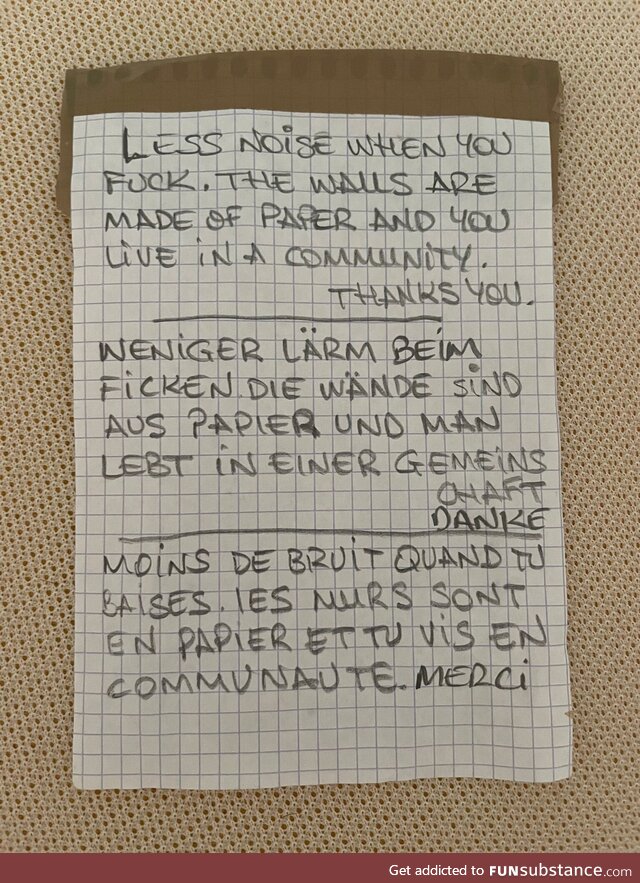 LESS NOISE WHEN YOU
FUCK. THE WALLS ARE
MADE OF PAPER AND YOU
LIVE IN A COMMUNITY.
THANKS YOU.
WENIGER LÄRM BEIM
FICKEN. DIE WÄNDE SIND
AUS PAPIER UND MAN
LEBT IN EINER GEMEINS
CHAFT
DANKE
MOINS DE BRUIT QUAND TU
BAISES. LES MURS SONT
EN PAPIER ET TU VIS EN
COMMUNAUTE. MERCI
Get addicted to FUNsubstance.com